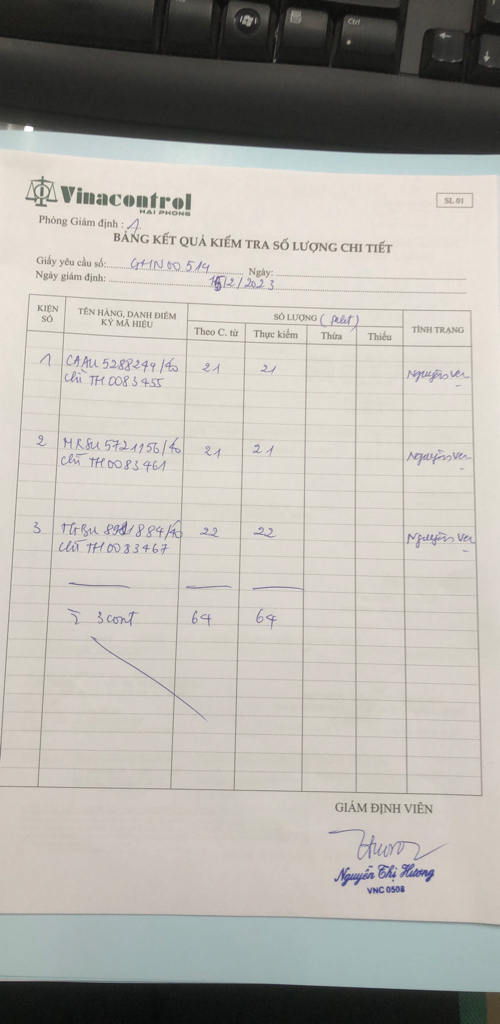 Vinacontrol
HAI PHONG
SL 01
Phòng Giám định : 1
BẢNG KẾT QUẢ KIỂM TRA SỐ LƯỢNG CHI TIẾT
Giấy yêu cầu số: GHN00514 Ngày:
Ngày giám định: 15/2/2023
KIỆN SỐ
TÊN HÀNG, DANH ĐIỂM KÝ MÃ HIỆU
SỐ LƯỢNG (palet)
TÌNH TRẠNG
Theo C. từ Thực kiểm Thừa Thiếu
1 CAAU 5288244/40 21 21 Nguyên vẹn
chì TH0083455
2 MRSU 5721156/40 21 21 Nguyên vẹn
chì TH0083461
3 /40 22 22 Nguyên vẹn
chì TH0083467
Σ 3 cont 64 64
GIÁM ĐỊNH VIÊN
Nguyễn Thị Hương
VNC 0508